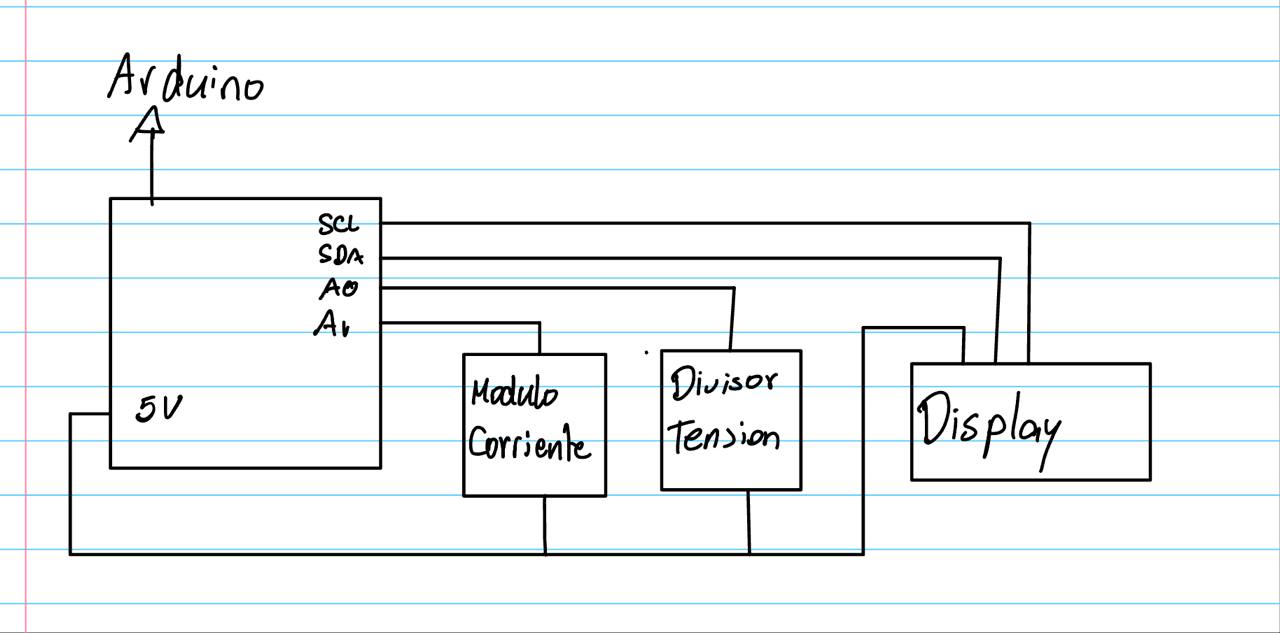 Arduino
SCL
SDA
A0
A1
5V
Modulo
Corriente
Divisor
Tension
Display